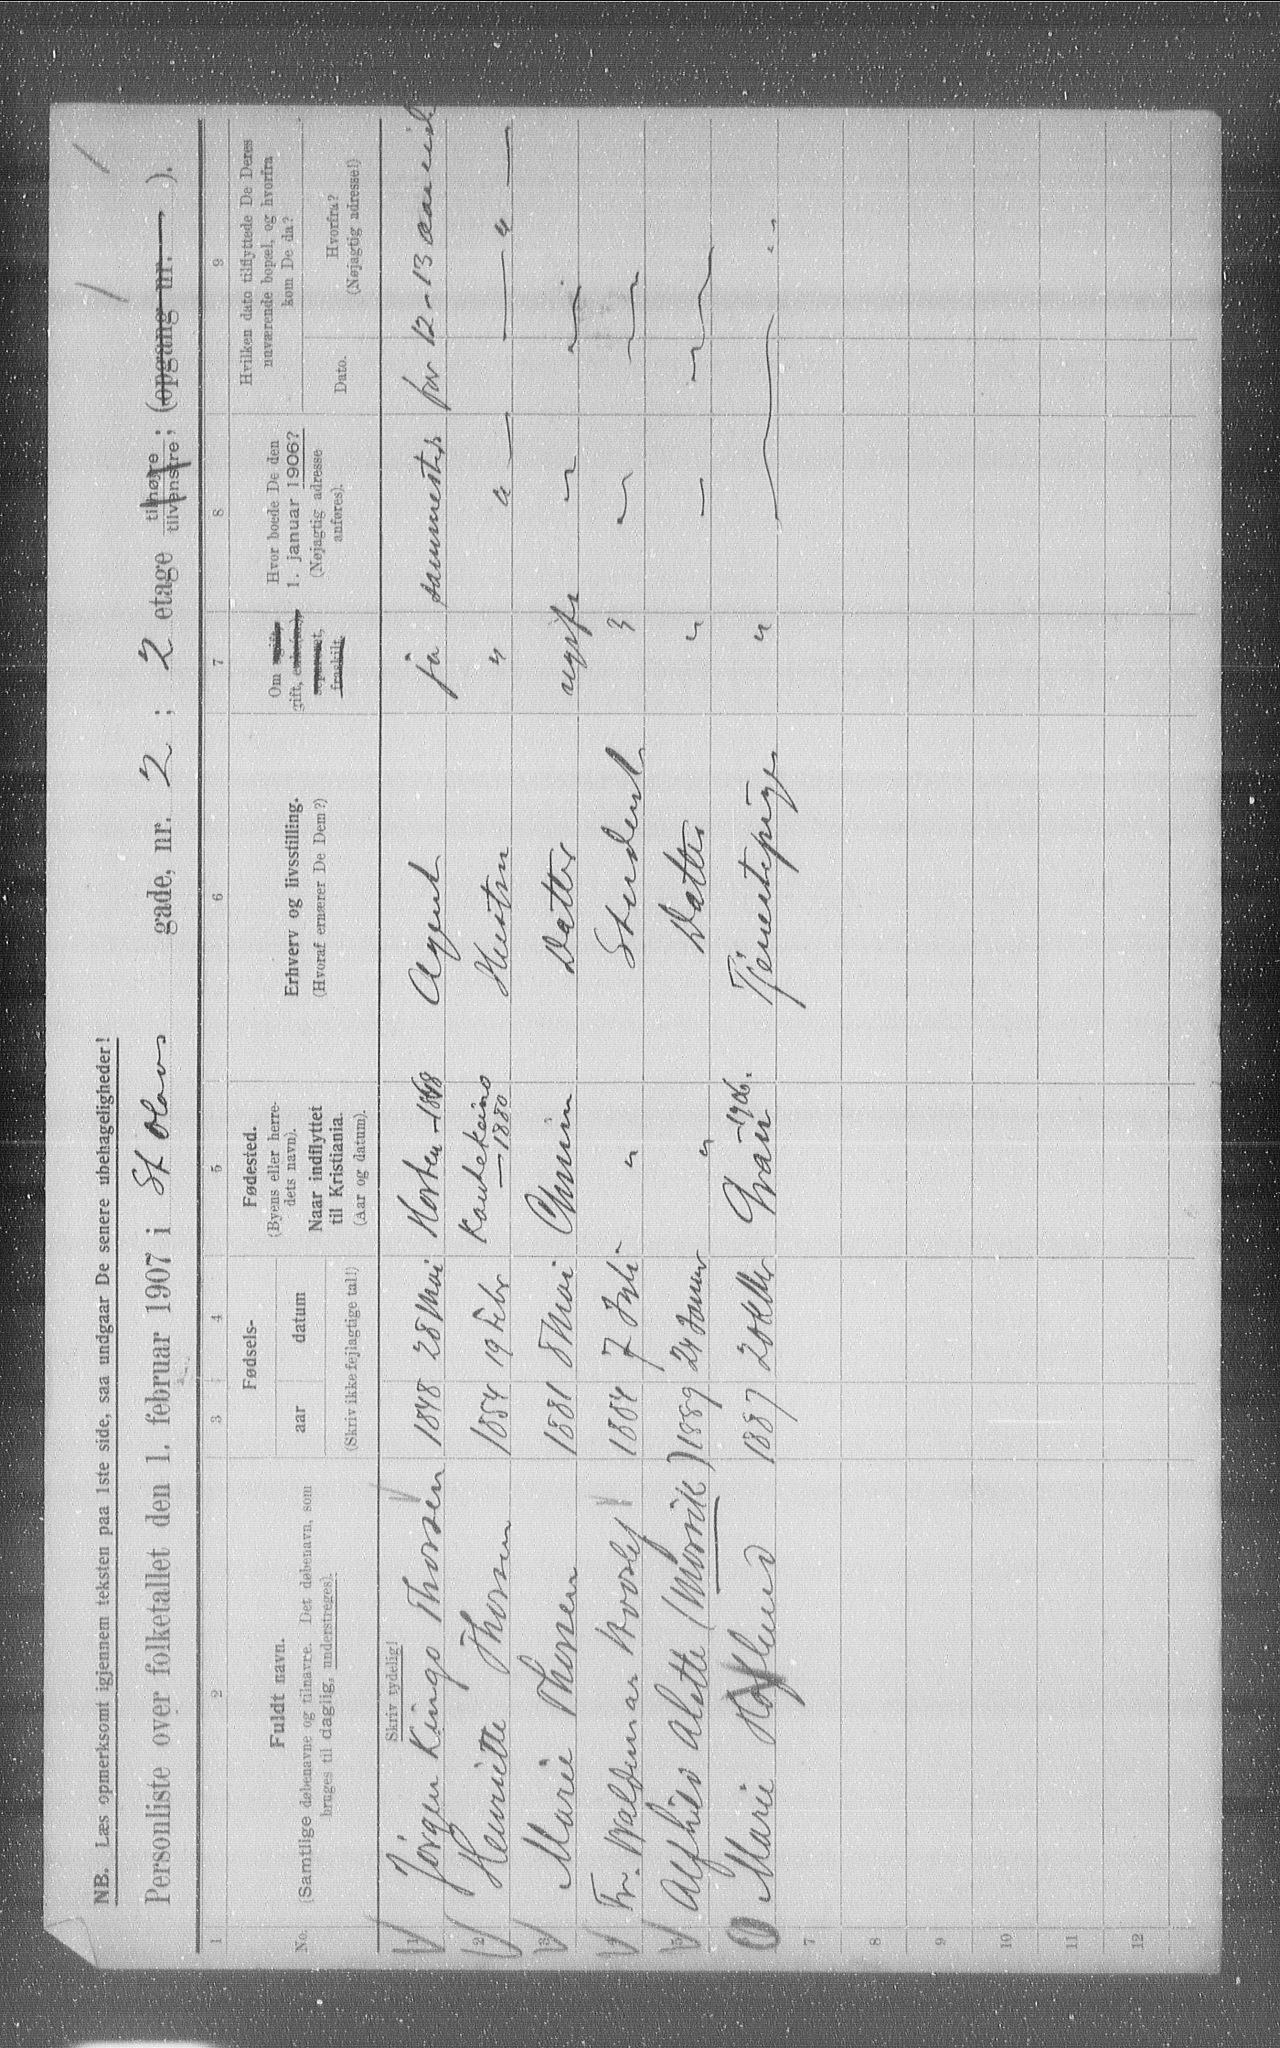 NB. Læs opmerksomt igjennem teksten paa 1ste side, saa undgaar De senere ubehageligheder!
Personliste over folketallet den 1. februar 1907 i St Olavs gade, nr. 2 ; 2 etage til højre til venstre ; (opgang nr. — ).
1 2 3 4 5 6 7 8 9
No.
Fuldt navn.
(Samtlige døbenavne og tilnavne. Det døbenavn, som
bruges til daglig, understreges).
Skriv tydelig!
Fødsels-
aar datum
(Skriv ikke fejlagtige tal!)
Fødested.
(Byens eller herre-
dets navn).
Naar indflyttet
til Kristiania.
(Aar og datum).
Erhverv og livsstilling.
(Hvoraf ernærer De Dem?)
Om ugift,
gift, enke(m.),
separeret,
fraskilt.
Hvor boede De den
1. januar 1906?
(Nøjagtig adresse
anføres).
Hvilken dato tilflyttede De Deres
nuværende bopæl, og hvorfra
kom De da?
Dato.
Hvorfra?
(Nøjagtig adresse!)
1 Jörgen Kingo Thorsen 1848 28 Mai Horten Agent ja sammesteds for 12-13 aar
2 Henriette Thorsen 1854 19 Febr Kautokeino — 1880 Hustru " " — — " —
3 Marie Thorsen 1881 8 Mai Chria Datter ugift
4 Fr. Waldemar 1884 7 Juli " Student "
5 Alfhild Alette 1889 24 Januar " Datter "
6 Marie 1887 20 Gran 1906. Tjenestepige "
7
8
9
10
11
12